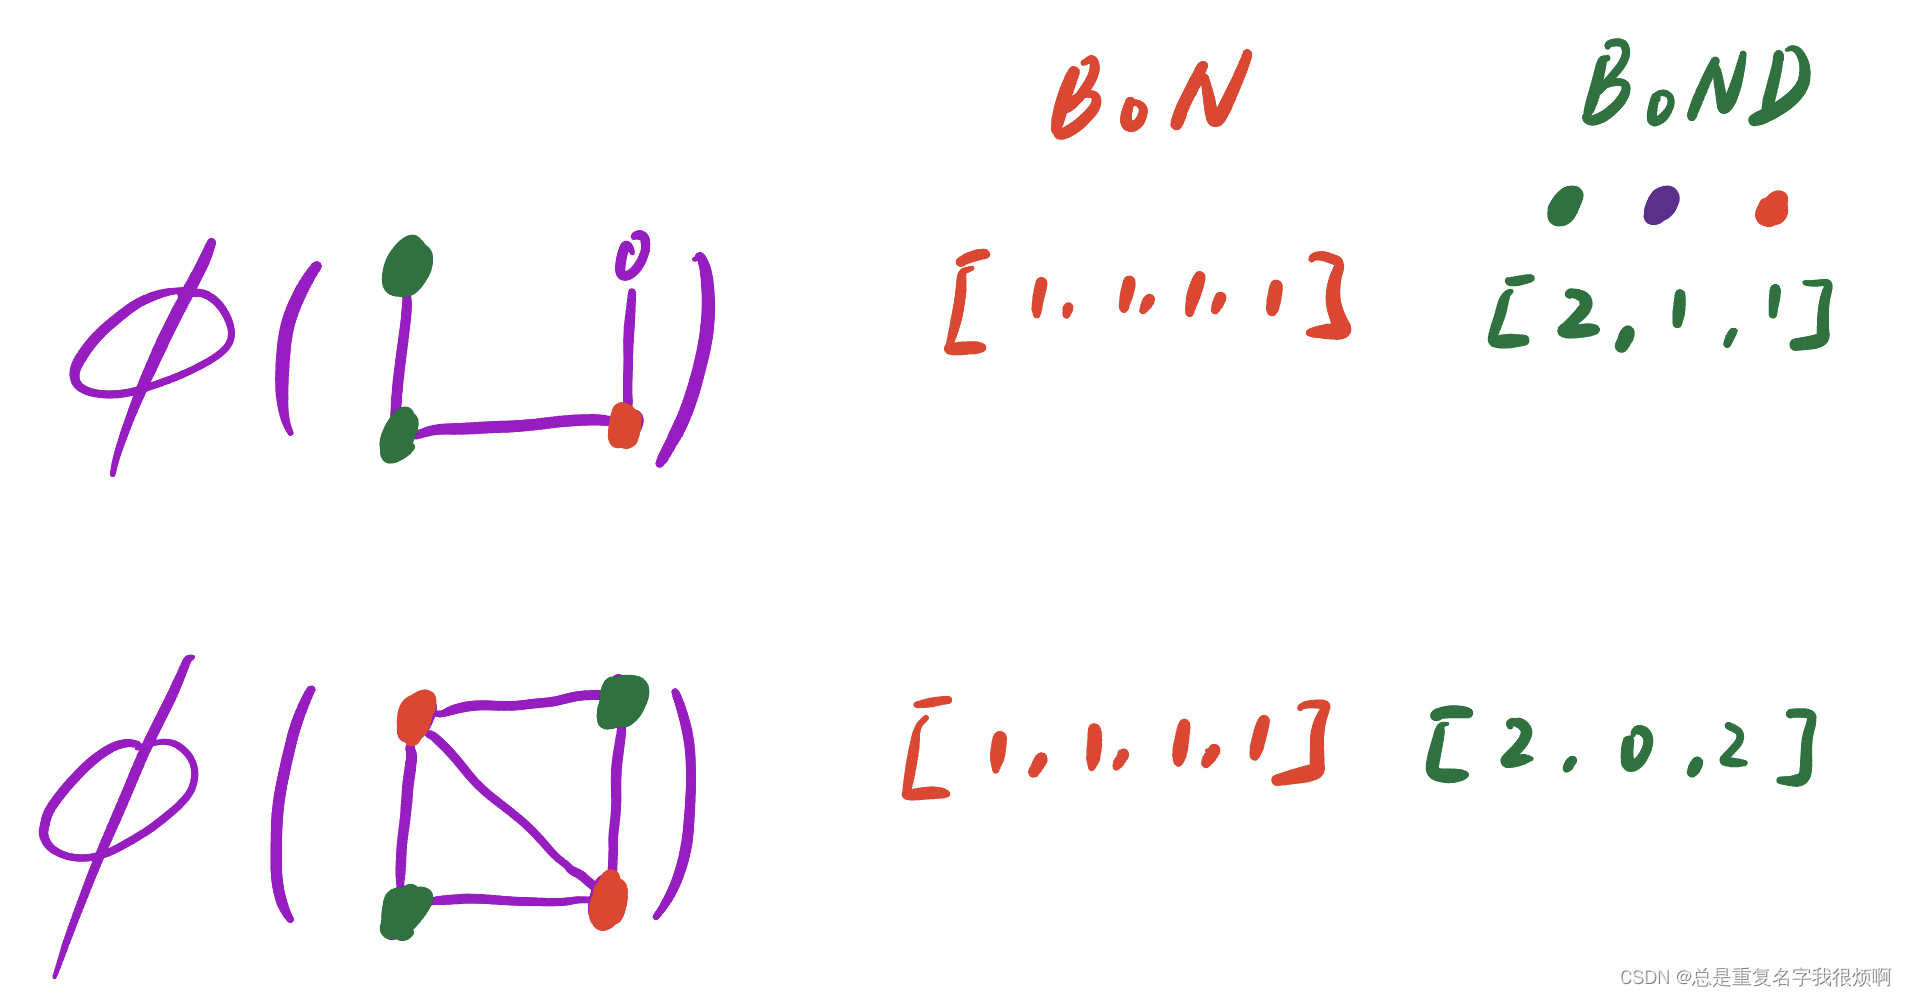 BoN BoND
ϕ ( ) [1, 1, 1, 1] [2, 1, 1]
ϕ ( ) [1, 1, 1, 1] [2, 0, 2]
CSDN @总是重复名字我很烦啊